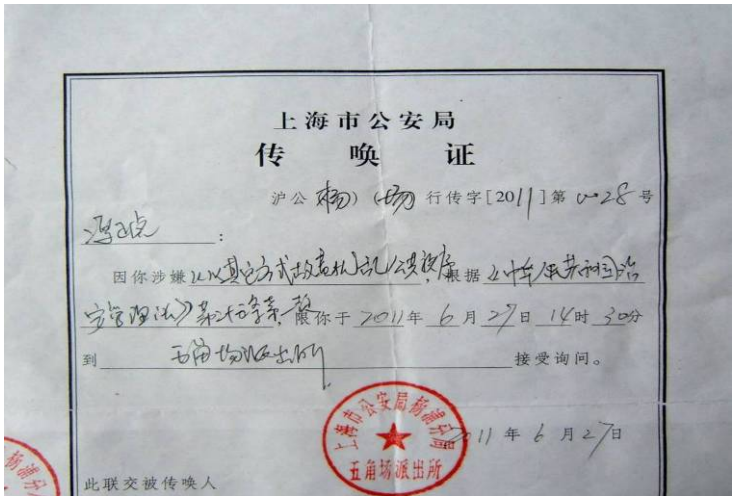 上海市公安局
传唤证
沪公(杨)(场)行传字[2011]第0028号
冯正虎:
因你涉嫌以其它方式故意扰乱公共秩序,根据《中华人民共和国治
安管理法》第二十五条第一款,限你于2011年6月27日14时30分
到五角场派出所接受询问。
上海市公安局杨浦分局
五角场派出所
2011年6月27日
此联交被传唤人
杨浦分